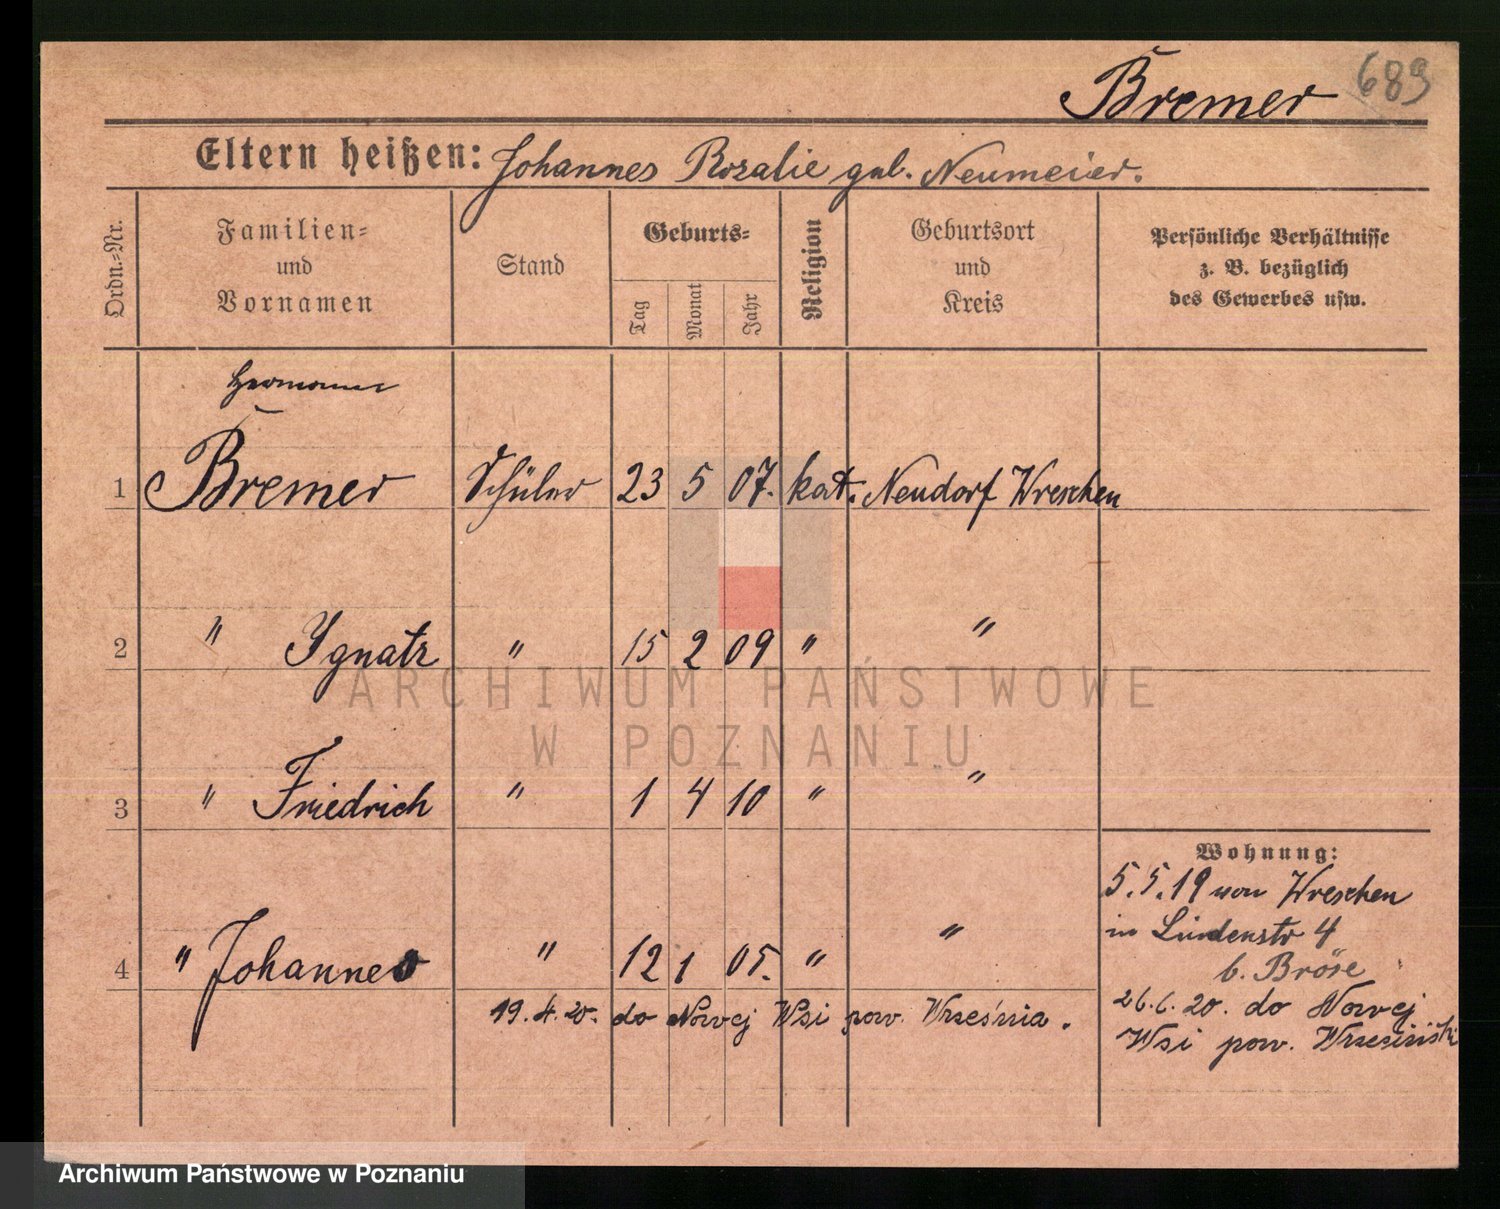 Bremer 689
Eltern heißen: Johannes Rozalie geb. Neumeier.
Ordn.-Nr.
Familien-
und
Vornamen
Stand
Geburts-
Tag
Monat
Jahr
Religion
Geburtsort
und
Kreis
Persönliche Verhältnisse
z. B. bezüglich
des Gewerbes usw.
Hermann
1 Bremer Schüler 23 5 07. kat. Neudorf Wreschen
2 " Ignatz " 15 2 09 " "
ARCHIWUM PAŃSTWOWE
W POZNANIU
3 " Friedrich " 1 4 10 " "
4 " Johannes " 12 1 05. " "
19.4.20. do Nowej Wsi pow. Września.
Wohnung:
5.5.19 von Wreschen
in Lindenstr 4
b. Bröse
26.6.20. do Nowej
Wsi pow. Wrzesiński
Archiwum Państwowe w Poznaniu